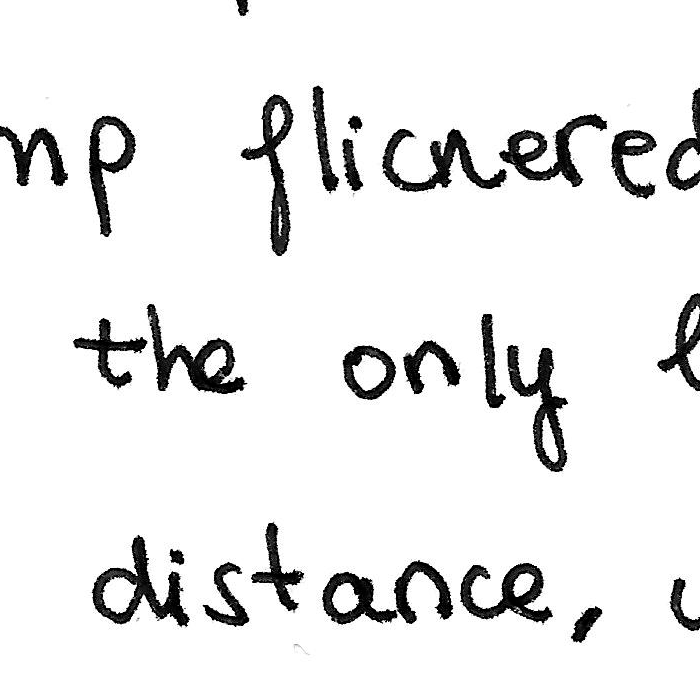 mp flicnered
the only l
distance,